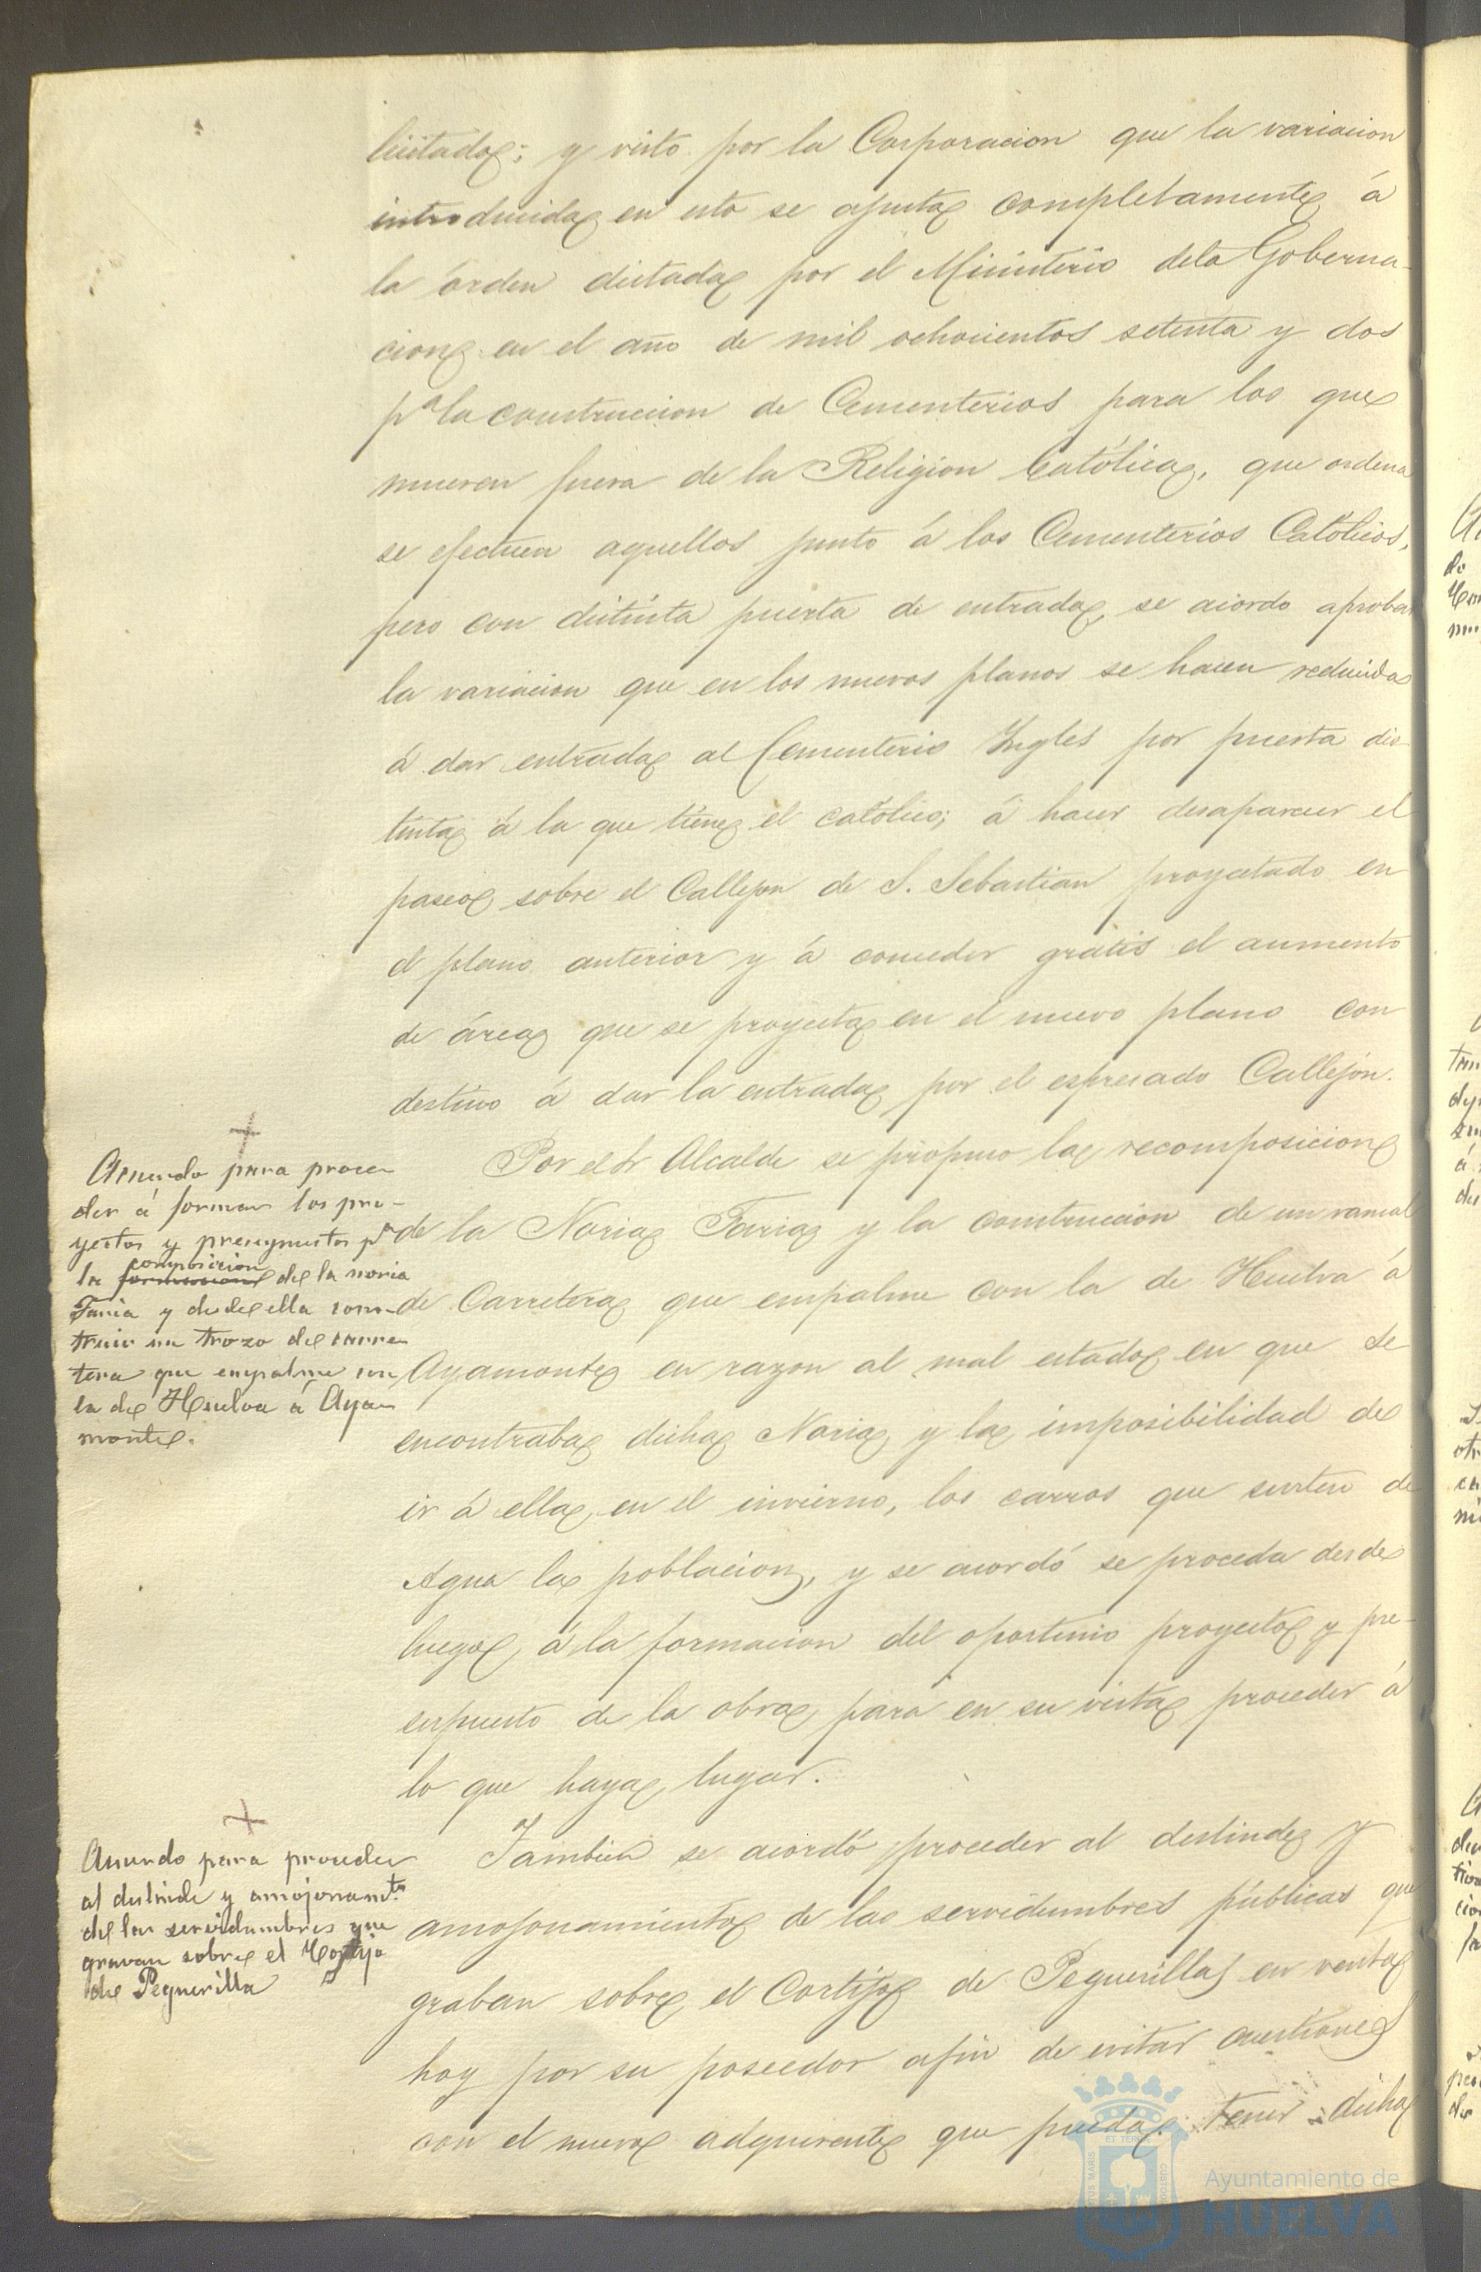 licitada; y visto por la Corporacion que la variacion
introducida en esto se ajusta completamente á
la órden dictada por el Ministerio dela Goberna-
cion en el año de mil ochocientos setenta y dos
pª la construccion de Cementerios para los que
mueren fuera de la Religion Católica, que ordena
se efectuen aquellos junto á los Cementerios Católicos,
pero con distinta puerta de entrada, se acordo aprobar
la variacion que en los nuevos planos se hacen reducida
á dar entrada al Cementerio Ynglés por puerta dis-
tinta á la que tiene el católico; á hacer desaparecer el
paseo sobre el Callejon de S. Sebastian proyectado en
el plano anterior y á conceder gratis el aumento
de área que se proyecta en el nuevo plano con
destino á dar la entrada por el espresado Callejón.
Acuerdo para proce-
der á formar los pro-
yectos y presupuestos pª
la composicion de la noria
Faria y desde ella cons-
truir un trozo de carre-
tera que empalme con
la de Huelva á Aya-
monte.
Por el Sr Alcalde se propuso la recomposicion
de la Noria Faria y la construccion de un ramal
de Carretera que empalme con la de Huelva á
Ayamonte en razon al mal estado en que se
encontraba dicha Noria y la imposibilidad de
ir á ella, en el invierno, los carros que surten de
Agua la poblacion, y se acordó se proceda desde
luego, á la formacion del oportuno proyecto y pre-
supuesto de la obra, para en su vista proceder á
lo que haya lugar.
Acuerdo para proceder
al deslinde y amojonamto
de las servidumbres que
gravan sobre el Cortijo
de Peguerilla
Tambien se acordó proceder al deslinde y
amojonamiento de las servidumbres públicas que
graban sobre el Cortijo de Peguerillas en venta
hoy por su poseedor afin de evitar cuestiones
con el nuevo adquirente que pueda tener dicha
Ayuntamiento de
HUELVA